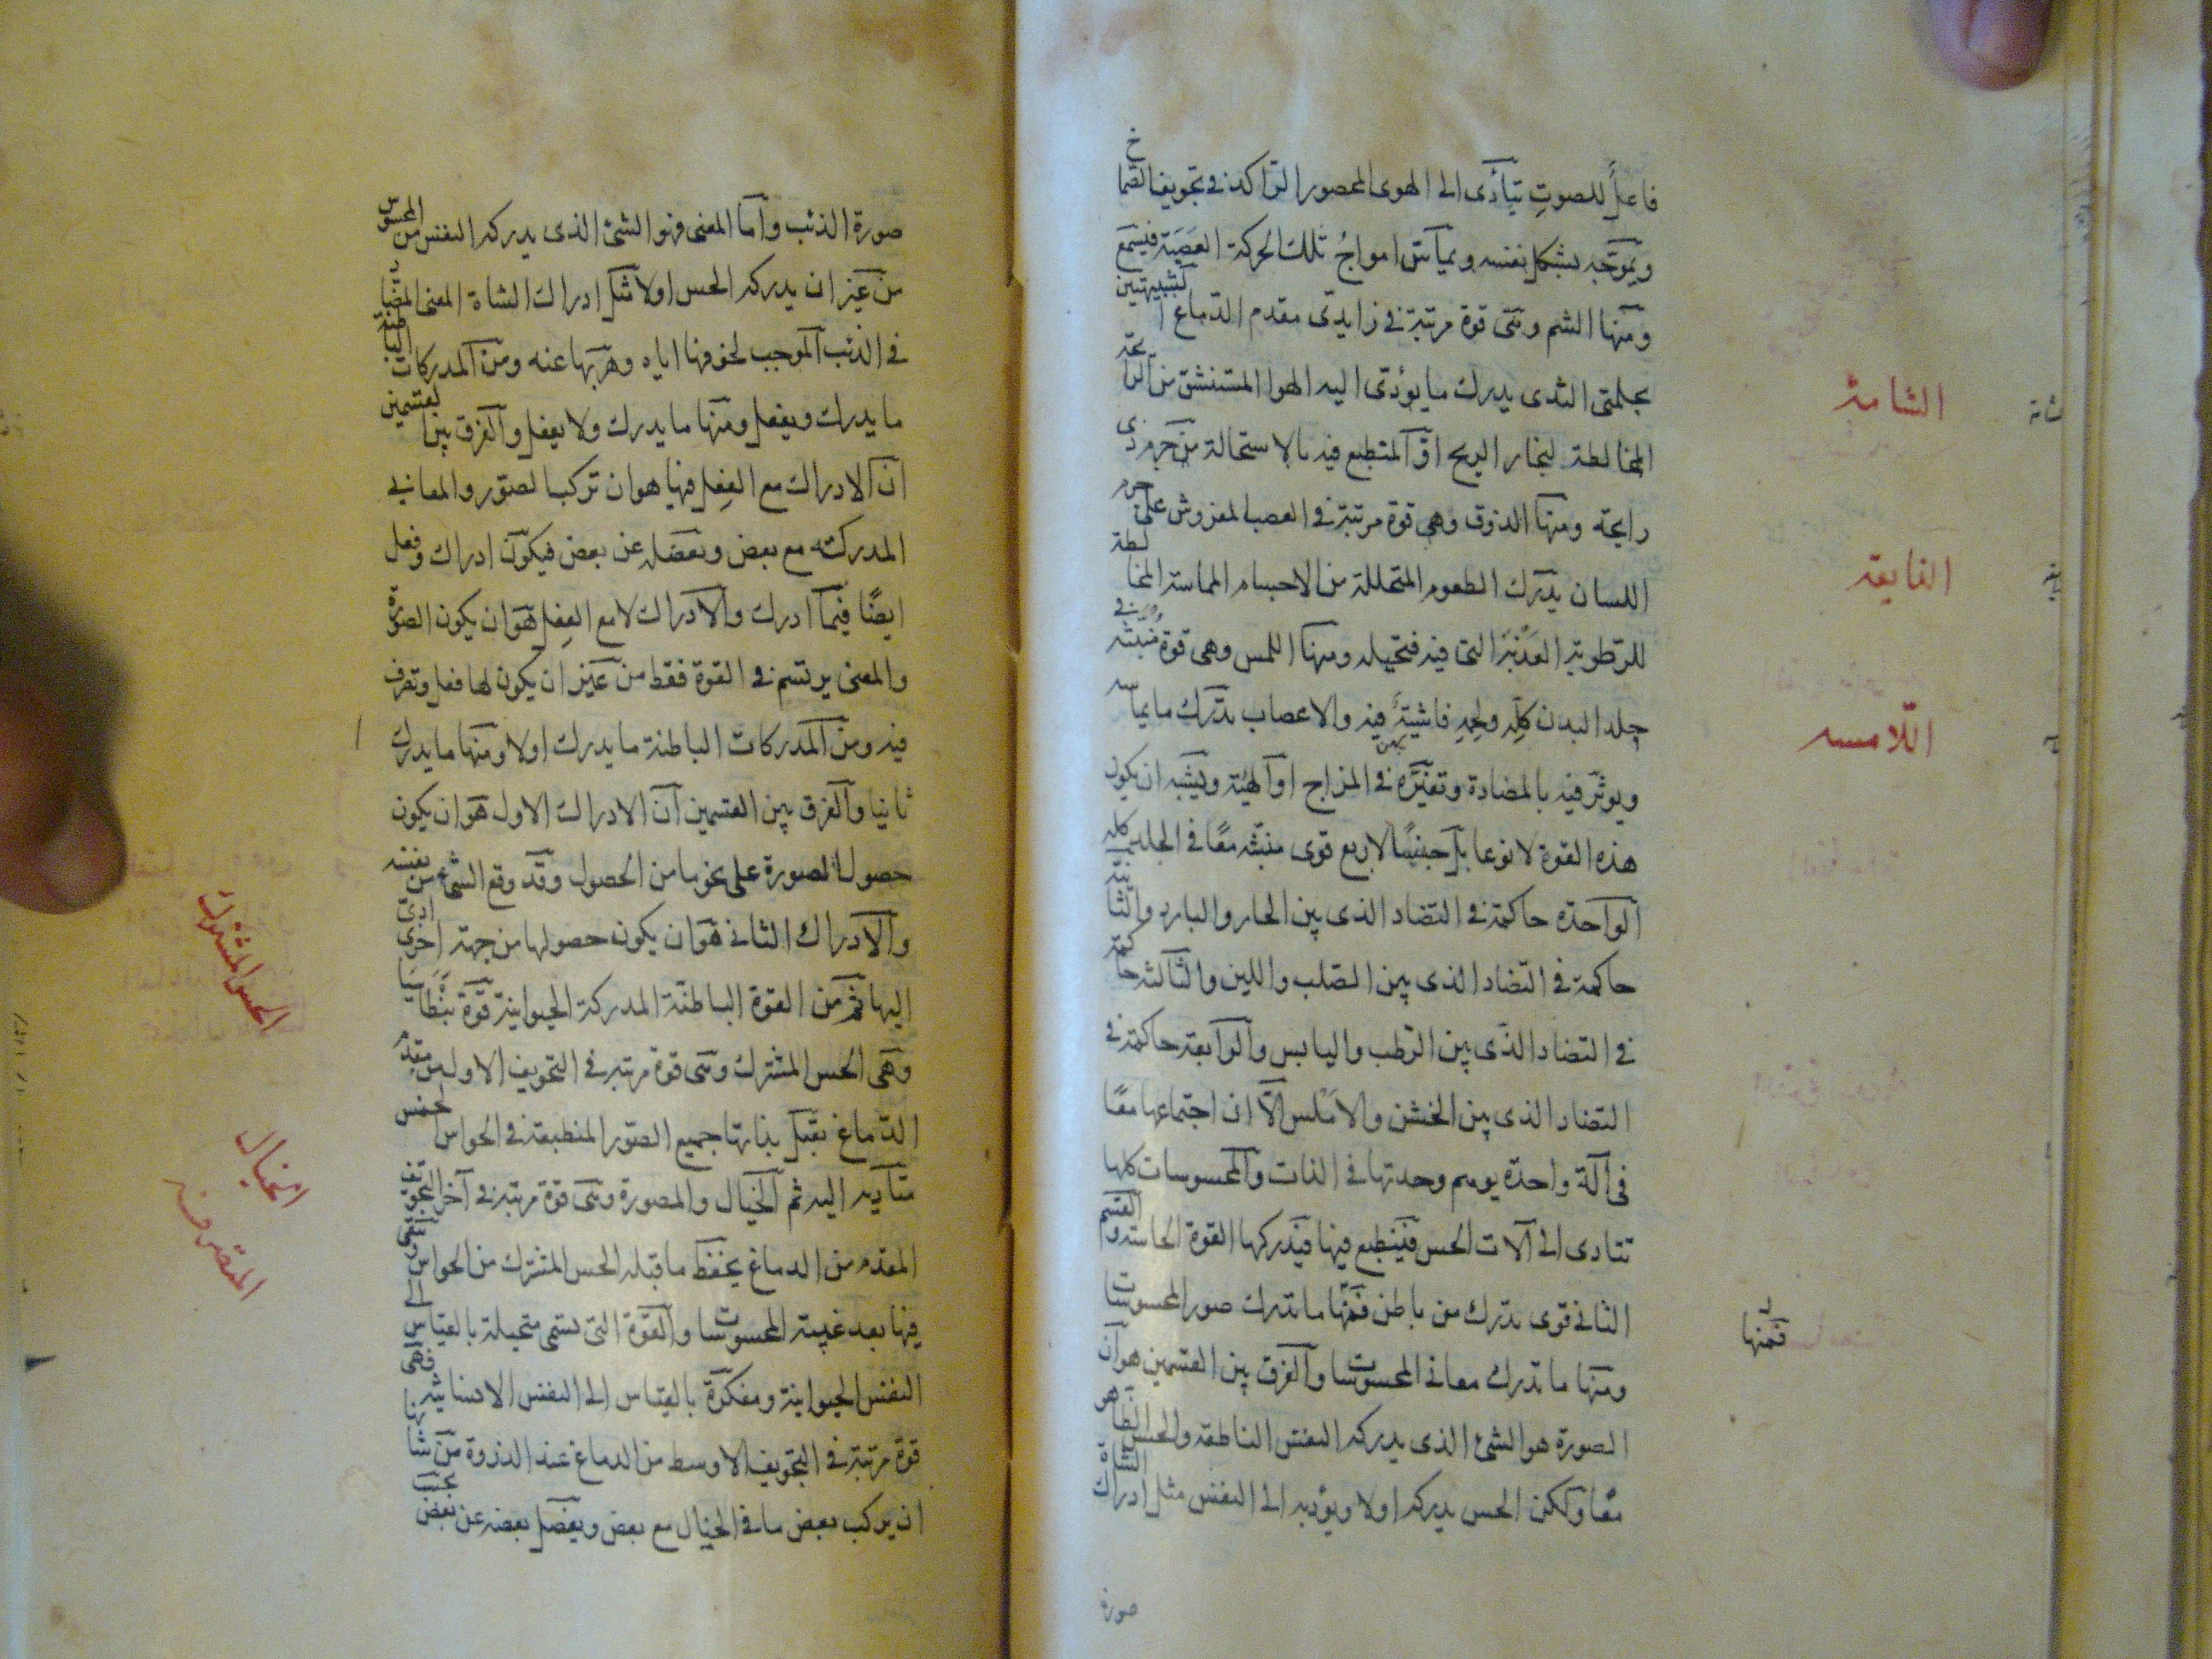 فاعلاً للصوت يتأدى الى الهوى المحصور الراكد فى تجويف الصماخ
ويموجه بشكل نفسه ويماس امواج تلك الحركة العصبة فيسمع
ومنها الشم وهى قوة مرتبة فى زايدتى مقدم الدماغ الشبيهتين
بحلمتى الثدى يدرك ما يؤدى اليه الهوا المستنشق من الرايحة
المخالطة لبخار الريح او المنطبع فيه بالاستحالة من جرم ذى
رايحة ومنها الذوق وهى قوة مرتبة فى العصب المفروش على جرم
اللسان يدرك الطعوم المتحللة من الاجسام المماسة المخالطة
للرطوبة العذبة التى فيه فتحيله ومنها اللمس وهى قوة منبثة فى
جلد البدن كله ولحمه فاشية فيه والاعصاب يدرك ما يماسه
ويوثر فيه بالمضادة وتغيره فى المزاج او الهيئة ويشبه ان يكون
هذه القوة لا نوعا بل جنسًا لاربع قوى منبثة معًا فى الجلد كله
الواحدة حاكمة فى التضاد الذى بين الحار والبارد والثانية
حاكمة فى التضاد الذى بين الصلب واللين والثالثة حاكمة
فى التضاد الذى بين الرطب واليابس والرابعة حاكمة فى
التضاد الذى بين الخشن والاملس الا ان اجتماعها معًا
فى آلة واحدة يوهم وحدتها فى الذات والمحسوسات كلها
تتادى الى آلات الحس فينطبع فيها فيدركها القوة الحاسة والقسم
الثانى قوى يدرك من باطن فمنها ما تدرك صور المحسوسات
ومنها ما تدرك معانى المحسوسات والفرق بين القسمين هو ان
الصورة هو الشئ الذى يدركه النفس الناطقة والحس الظاهر
معًا ولكن الحس يدركه اولا ويؤديه الى النفس مثل ادراك الشاة
صورة
الشامة
الذايقة
اللامسه
فمنها
صورة الذئب واما المعنى فهو الشئ الذى يدركه النفس من المحسوس
من غير ان يدركه الحس اولا مثل ادراك الشاة المعنى المضاد
فى الذئب الموجب لخوفها اياه وهربها عنه ومن المدركات الباطنة
ما يدرك ويفعل ومنها ما يدرك ولا يفعل والفرق بين القسمين
ان الادراك مع الفعل فيها هو ان تركب الصور والمعانى
المدركة مع بعض وبفصله عن بعض فيكون ادراك وفعل
ايضًا فيما ادرك والادراك لا مع الفعل هو ان يكون الصورة
والمعنى يرتسم فى القوة فقط من غير ان يكون لها فعل وتصرف
فيه ومن المدركات الباطنة ما يدرك اولا ومنها ما يدرك
ثانيا والفرق بين القسمين ان الادراك الاول هو ان يكون
حصول الصورة على نحو ما من الحصول وقد وقع الشئ من نفسه
والادراك الثانى هو ان يكون حصولها من جهة اخرى ادى
اليها ثم من القوة الباطنة المدركة الحيوانية قوة بنطاسيا
وهى الحس المشترك وهى قوة مرتبة فى التجويف الاول من مقدم
الدماغ يقبل بذاتها جميع الصور المنطبعة فى الحواس الخمس
متأدية اليه ثم الخيال والمصورة وهى قوة مرتبة فى آخر التجويف
المقدم من الدماغ يحفظ ما قبله الحس المشترك من الحواس وتبقى
فيها بعد غيبة المحسوسات والقوة التى تسمى متخيلة بالقياس الى
النفس الحيوانية ومفكرة بالقياس الى النفس الانسانية فهى
قوة مرتبة فى التجويف الاوسط من الدماغ عند الدزوة من شأنها
ان يركب بعض ما فى الخيال مع بعض ويفصل بعضه عن بعض بحسب
الحس المشترك
الخيال
المتصرفه